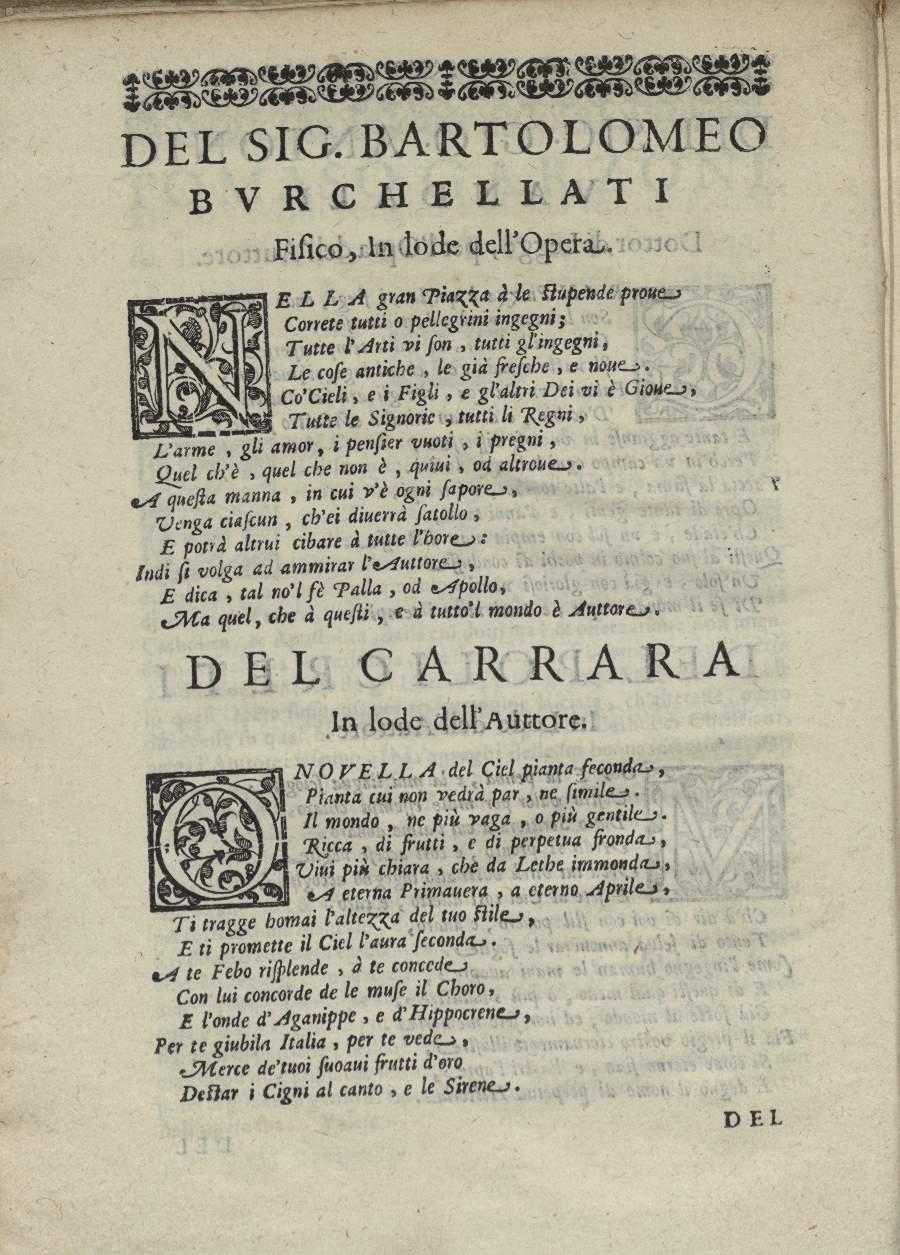 DEL SIG. BARTOLOMEO
BVRCHELLATI
Fiſico, In lode dell'Opera.
NELLA gran Piazza à le ſtupende proue
Correte tutti o pellegrini ingegni;
Tutte l'Arti vi ſon, tutti gl'ingegni,
Le coſe antiche, le già freſche, e noue.
Co'Cieli, e i Figli, e gl'altri Dei vi è Gioue,
Tutte le Signorie, tutti li Regni,
L'arme, gli amor, i penſier vuoti, i pregni,
Quel ch'è, quel che non è, quiui, od altroue.
A queſta manna, in cui v'è ogni ſapore,
Venga ciaſcun, ch'ei diuerrà ſatollo,
E potrà altrui cibare à tutte l'hore:
Indi ſi volga ad ammirar l'Auttore,
E dica, tal no'l fè Palla, od Apollo,
Ma quel, che à queſti, e à tutto'l mondo è Auttore.
DEL CARRARA
In lode dell'Auttore.
O NOVELLA del Ciel pianta feconda,
Pianta cui non vedrà par, ne ſimile.
Il mondo, ne più vaga, o più gentile.
Ricca, di frutti, e di perpetua fronda,
Viui più chiara, che da Lethe immonda,
A eterna Primauera, a eterno Aprile,
Ti tragge homai l'altezza del tuo ſtile,
E ti promette il Ciel l'aura ſeconda.
A te Febo riſplende, à te concede
Con lui concorde de le muſe il Choro,
E l'onde d'Aganippe, e d'Hippocrene,
Per te giubila Italia, per te vede,
Merce de'tuoi ſuoaui frutti d'oro
Deſtar i Cigni al canto, e le Sirene.
DEL